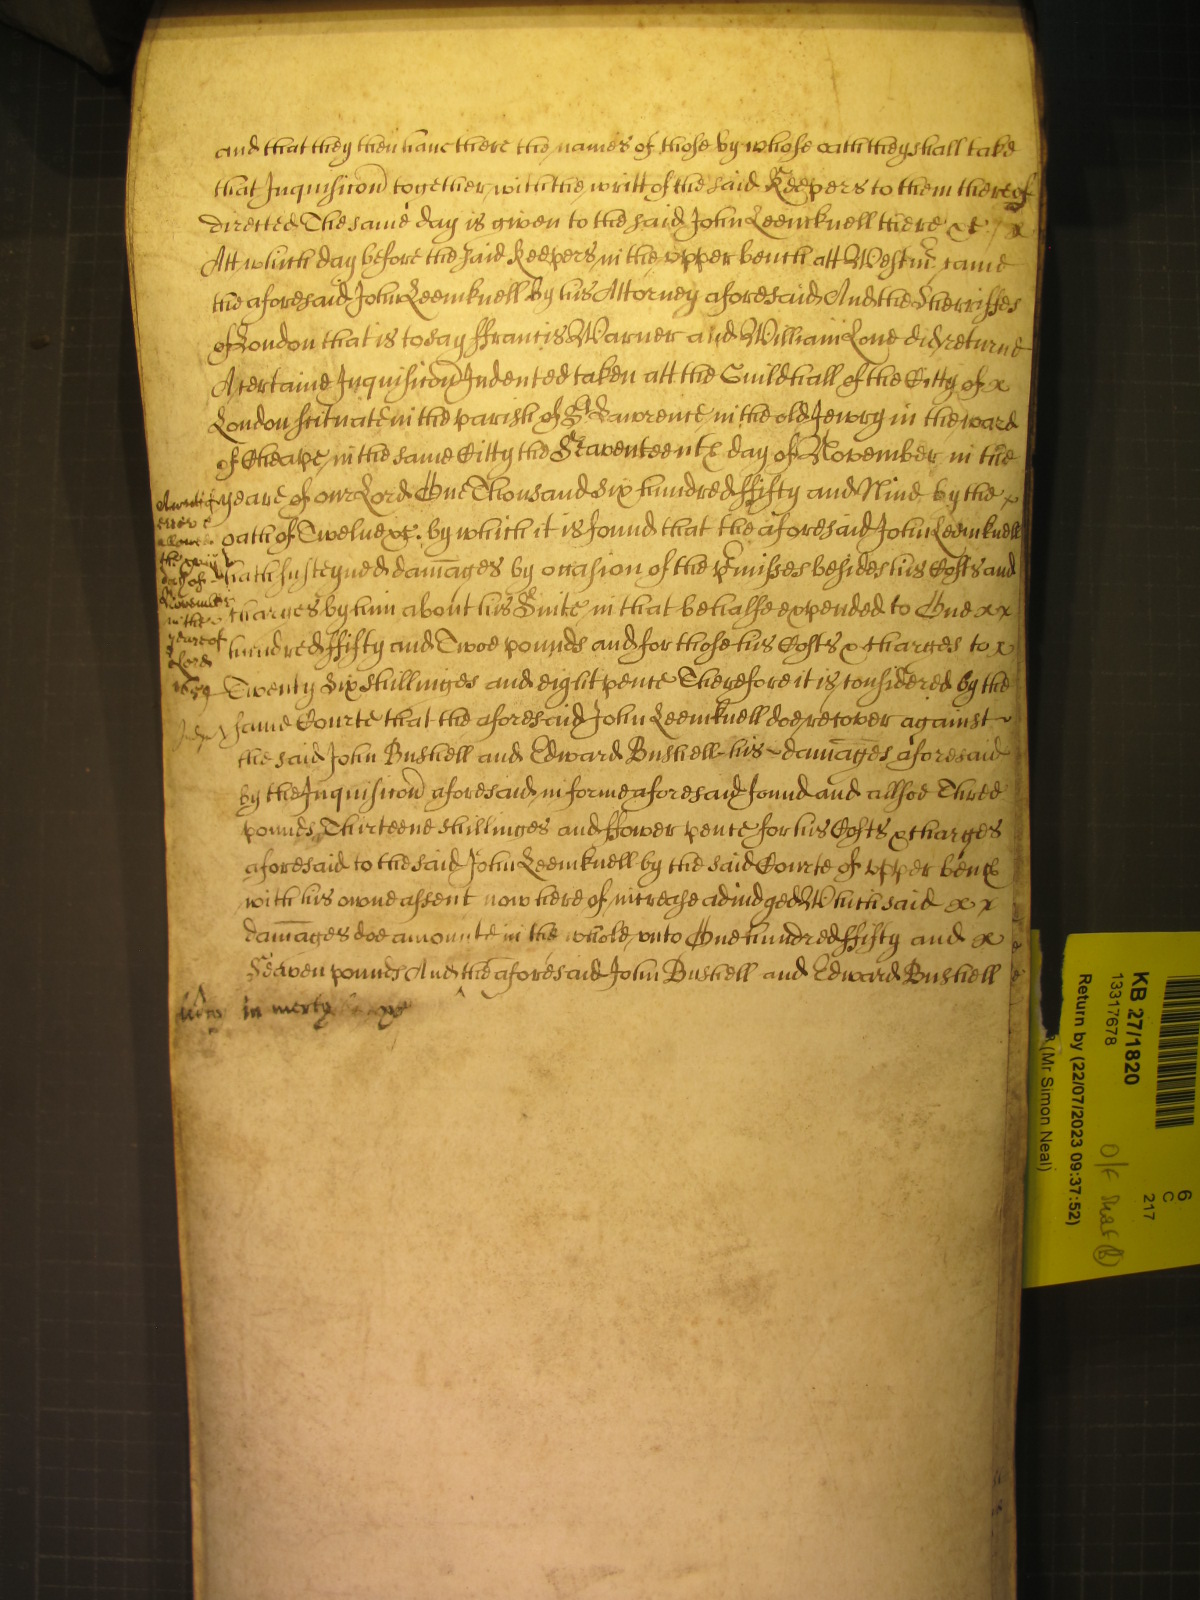 and that they then haue there the names of those by whose oath they shall take
that Inquisicon together with the writt of the said Keepers to them thereof
directed The same day is given to the said John Leemknell there &c x
Att which day before the said Keepers in the vpper bench att Westmr came
the aforesaid John Leemknell by his Attorney aforesaid And the Sherriffes
of London that is to say ffrancis Warner and William Loue did returne
A certaine Inquisicon Indented taken att the Guildhall of the Citty of x
London scituate in the parish of St Lawrence in the old Jewry in the ward
of Cheape in the same Citty the Seaventeenth day of November in the
yeare of our Lord One Thousand six hundred ffifty and Nine by the x
oath of Twelue &c. by which it is found that the aforesaid John Leemknell
hath susteyned damages by occasion of the pmisses besides his Costs and
charges by him about his Suite in that behalfe expended to One x x
hundred ffifty and Twoe pounds and for those his Costs & charges to x
Twenty six shillinges and eight pence Therefore it is considered by the
same Courte that the aforesaid John Leemknell doe recover against
the said John Bushell and Edward Bushell his damages aforesaid
by the Inquisicon aforesaid in forme aforesaid found and allsoe Three
pounds Thirteene shillinges and ffower pence for his Costs & charges
aforesaid to the said John Leemknell by the said Courte of vpper bench
with his owne assent now here of increase adiudged Which said x x
damages doe amounte in the whole vnto One hundred ffifty and x
Seaven pounds And the aforesaid John Bushell and Edward Bushell
in mercy &c
the
day of
November
in the
yeare of
Lord
1659
KB 27/1820
13317678
Return by (22/07/2023 09:37:52)
(Mr Simon Neal)
6
C
217